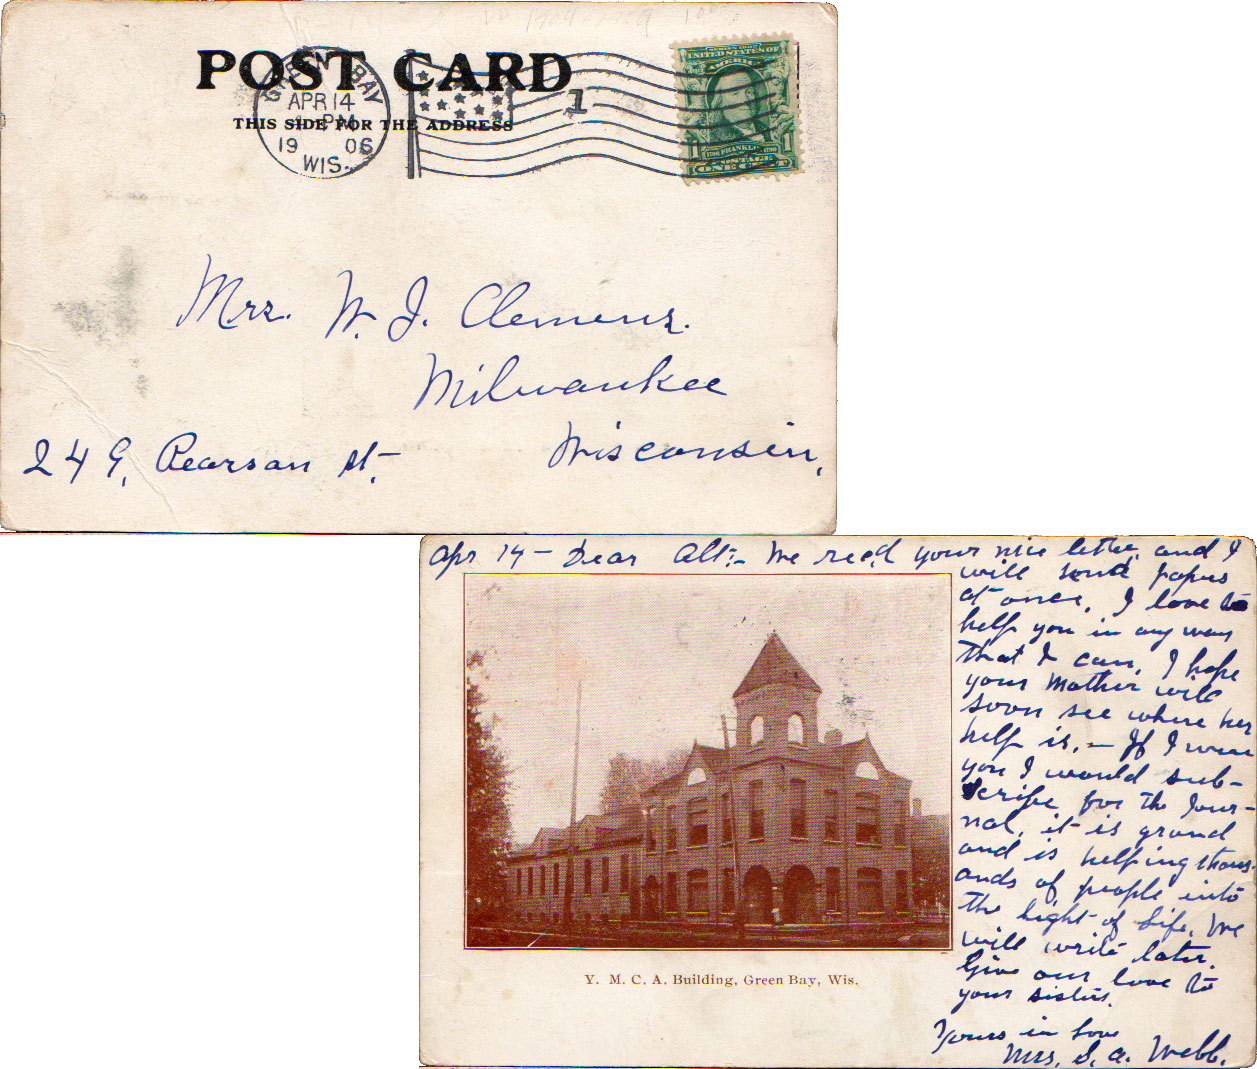 POST CARD
THIS SIDE FOR THE ADDRESS
GREEN BAY
APR 14
PM
1906
WIS.
1
SERIES 1902
UNITED STATES OF
AMERICA
1706 FRANKLIN 1790
POSTAGE
1 ONE CENT 1
Mrs. W. J. Clemens.
Milwaukee
Wisconsin,
249, Pearson st.
Apr 14 - Dear All:- We rec,d your nice letter, and I
will send papers
at once, I love to
help you in any way
that I can, I hope
your Mother will
soon see where her
help is, - If I were
you I would sub-
scribe for the Jour-
nal, it is grand
and is helping thous-
ands of people into
the light of Life. We
will write later.
Give our love to
your sisters.
Yours in Love
Mrs. S. A. Webb.
Y. M. C. A. Building, Green Bay, Wis.